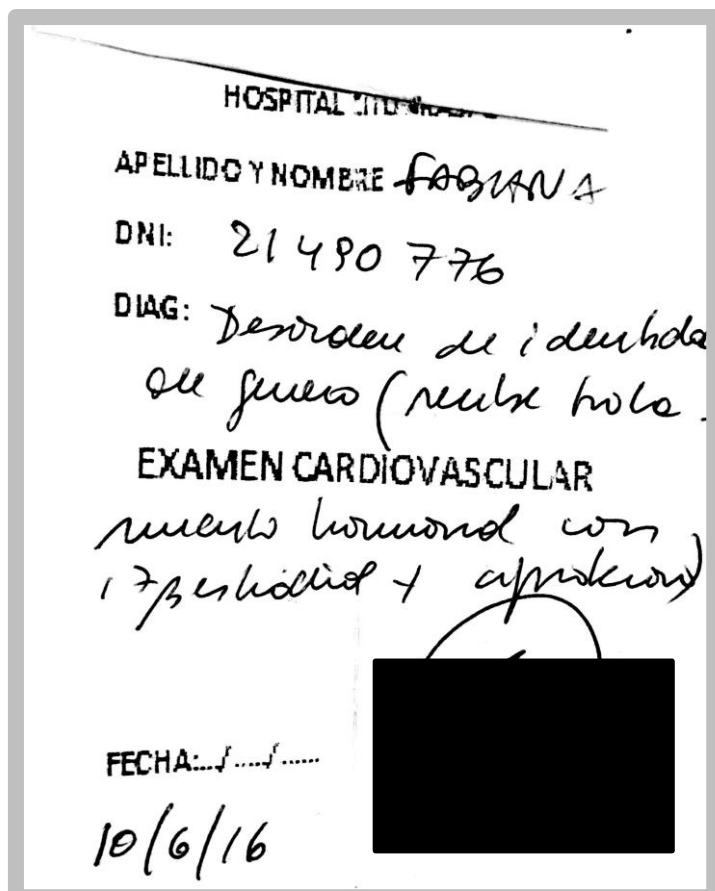 HOSPITAL
APELLIDO Y NOMBRE FABIANA
DNI: 21 490 776
DIAG: Desorden de identida
de genero (recibe trata
EXAMEN CARDIOVASCULAR
miento hormonal con
17β estradiol + ciproterona)
FECHA:../..../......
10/6/16